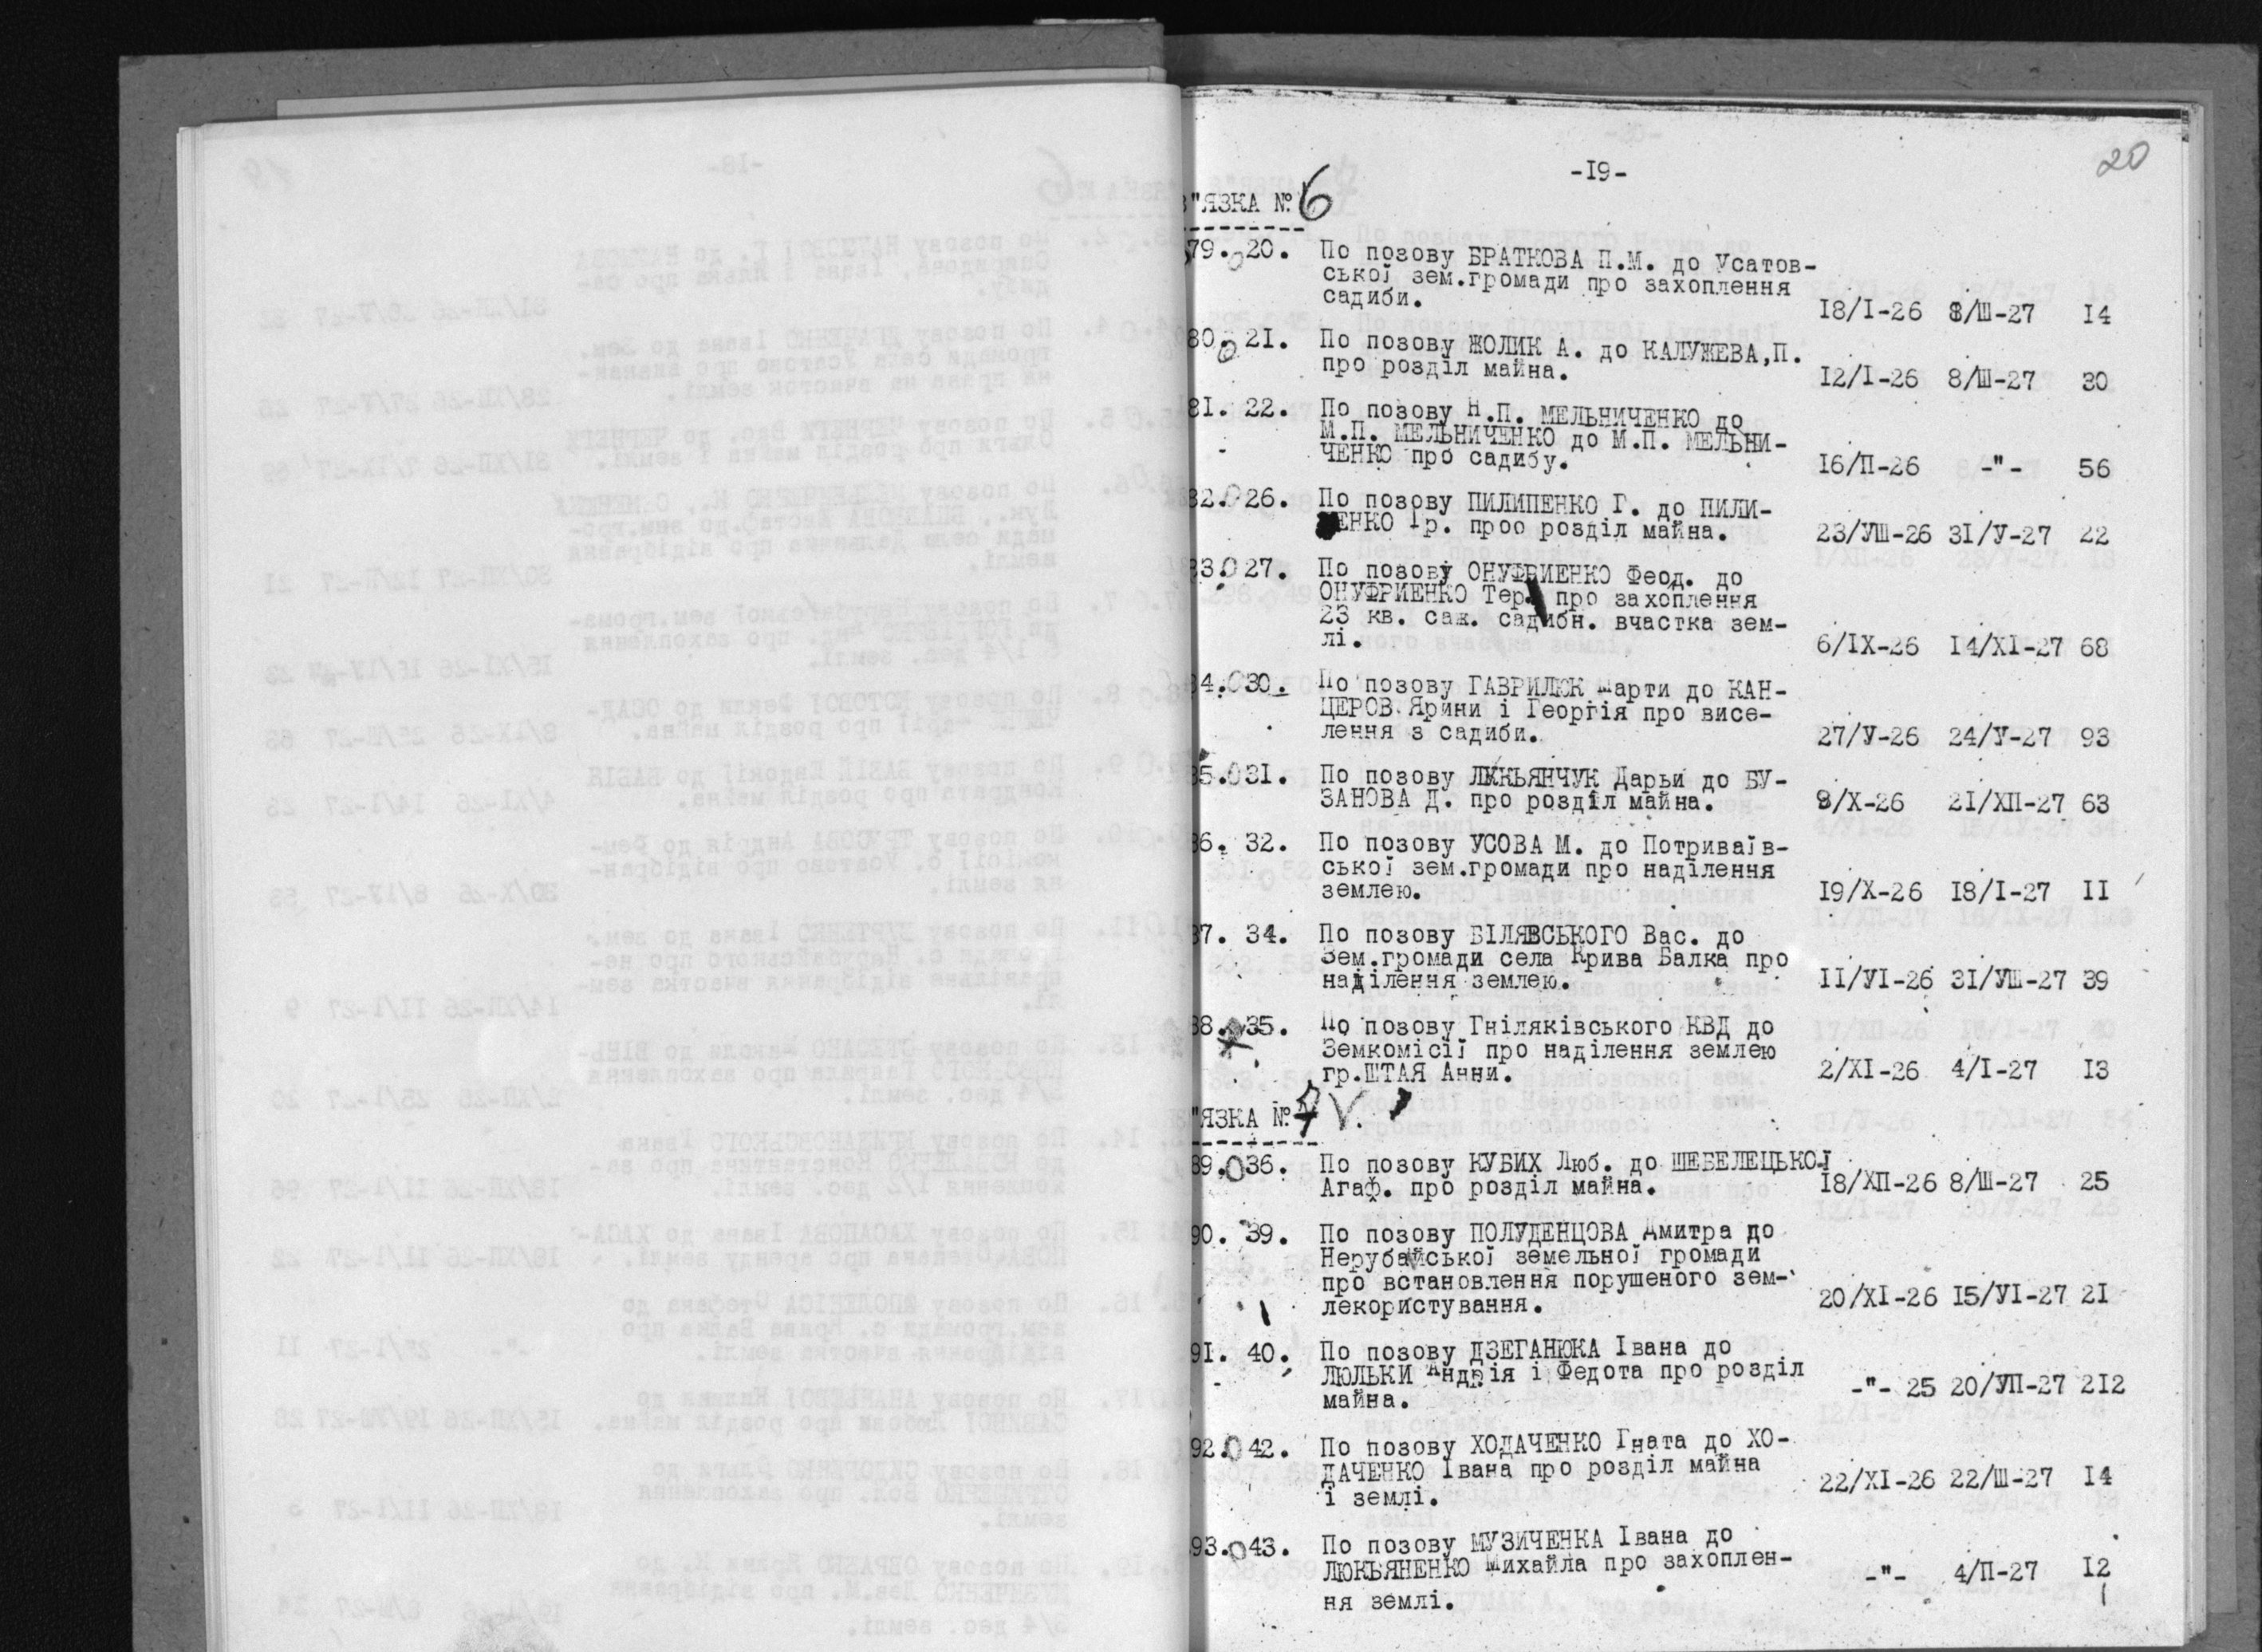 -I9-
20
"ЯЗКА № 6
79. 20. По позову БРАТКОВА П.М. до Усатов-
ської зем.громади про захоплення
садиби. I8/I-26 8/Ш-27 I4
80. 2I. По позову ЖОЛИК А. до КАЛУЖЕВА,П.
про розділ майна. I2/I-26 8/Ш-27 30
8I. 22. По позову Н.П. МЕЛЬНИЧЕНКО до
М.П. МЕЛЬНИЧЕНКО до М.П. МЕЛЬНИ-
ЧЕНКО про садибу. I6/П-26 -"- 56
82. 26. По позову ПИЛИПЕНКО Г. до ПИЛИ-
ЕНКО Гр. проо розділ майна. 23/УШ-26 3I/У-27 22
83. 27. По позову ОНУФРИЕНКО Феод. до
ОНУФРИЕНКО Тер. про захоплення
23 кв. саж. садибн. вчастка зем-
лі. 6/IX-26 I4/XI-27 68
84. 30. По позову ГАВРИЛЮК Марти до КАН-
ЦЕРОВ Ярини і Георгія про висе-
лення з садиби. 27/У-26 24/У-27 93
85. 3I. По позову ЛУКЬЯНЧУК Дарьи до БУ-
ЗАНОВА Д. про розділ майна. 9/X-26 2I/ХП-27 63
86. 32. По позову УСОВА М. до Потриваїв-
ської зем.громади про наділення
землею. I9/X-26 I8/I-27 II
87. 34. По позову БІЛЯВСЬКОГО Вас. до
Зем.громади села Крива Балка про
наділення землею. II/УI-26 3I/УШ-27 39
88. 35. По позову Гніляківського КВД до
Земкомісії про наділення землею
гр.ШТАЯ Анни. 2/XI-26 4/I-27 I3
"ЯЗКА № 7 V.
89. 36. По позову КУБИХ Люб. до ШЕБЕЛЕЦЬКОЇ
Агаф. про розділ майна. I8/ХП-26 8/Ш-27 25
90. 39. По позову ПОЛУДЕНЦОВА Дмитра до
Нерубайської земельної громади
про встановлення порушеного зем-
лекористування. 20/XI-26 I5/УI-27 2I
9I. 40. По позову ДЗЕГАНЮКА Івана до
ЛЮЛЬКИ Андрія і Федота про розділ
майна. -"- 25 20/УП-27 2I2
92. 42. По позову ХОДАЧЕНКО Гната до ХО-
ДАЧЕНКО Івана про розділ майна
і землі. 22/XI-26 22/Ш-27 I4
93. 43. По позову МУЗИЧЕНКА Івана до
ЛЮКЬЯНЕНКО Михайла про захоплен-
ня землі. -"- 4/П-27 I2